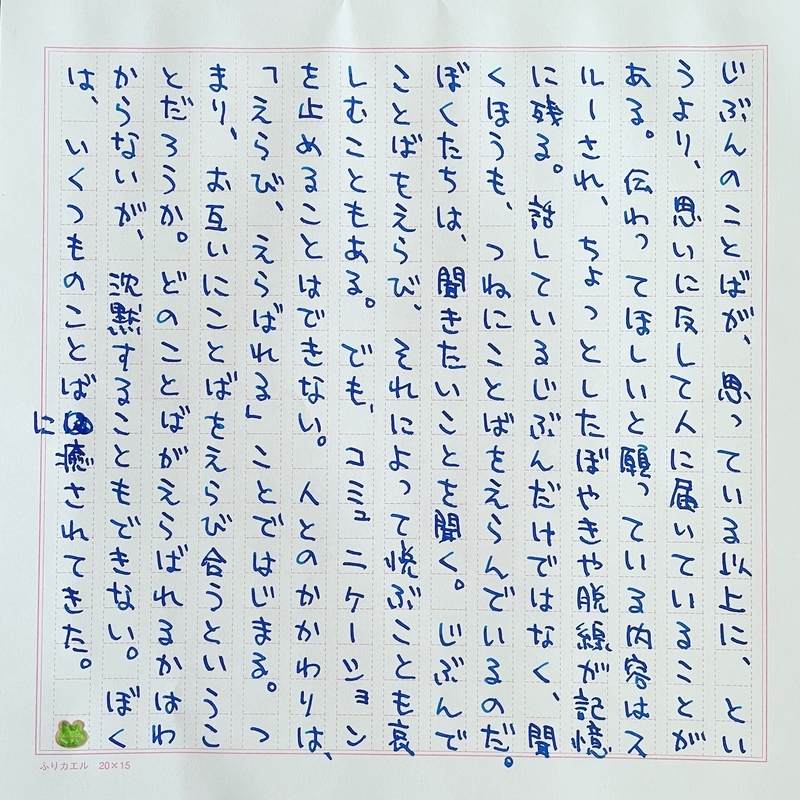 じぶんのことばが、思っている以上に、とい
うより、思いに反して人に届いていることが
ある。伝わってほしいと願っている内容はス
ルーされ、ちょっとしたぼやきや脱線が記憶
に残る。話しているじぶんだけではなく、聞
くほうも、つねにことばをえらんでいるのだ。
ぼくたちは、聞きたいことを聞く。じぶんで
ことばをえらび、それによって悦ぶことも哀
しむこともある。でも、コミュニケーション
を止めることはできない。人とのかかわりは、
「えらび、えらばれる」ことではじまる。つ
まり、お互いにことばをえらび合うというこ
とだろうか。どのことばがえらばれるかはわ
からないが、沈黙することもできない。ぼく
は、いくつものことばに癒されてきた。
ふりカエル 20×15